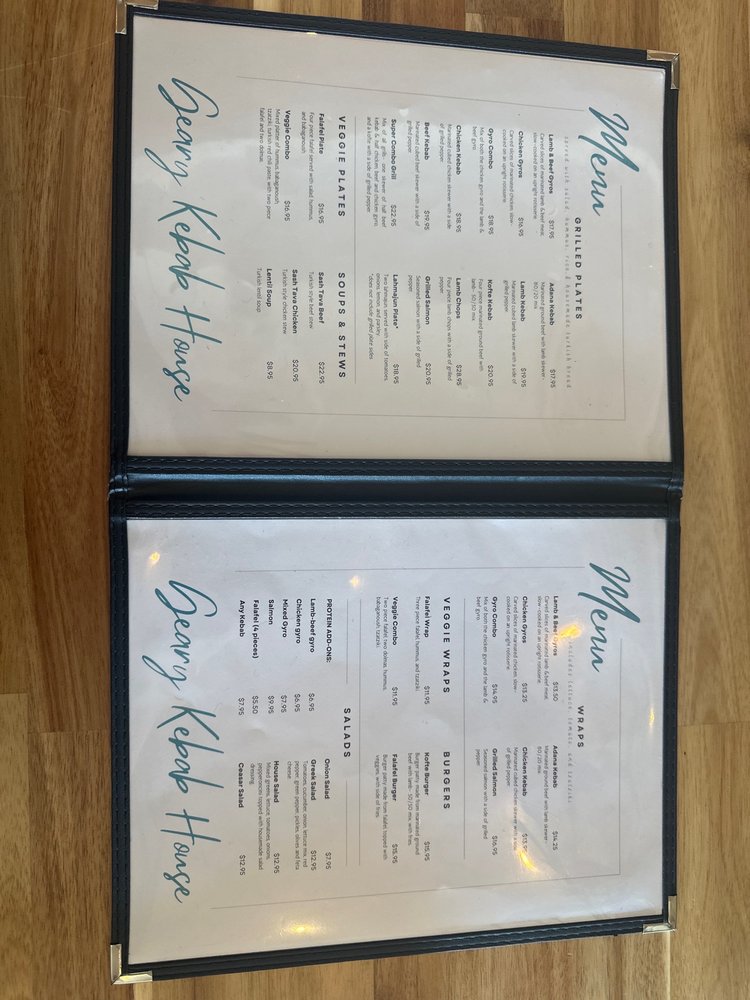 Menu
GRILLED PLATES
served with salad, hummus, rice & housemade turkish bread
Lamb & Beef Gyros $17.95
Carved slices of marinated lamb & beef meat,
slow-cooked on an upright rotisserie.
Chicken Gyros $16.95
Carved slices of marinated chicken, slow-
cooked on an upright rotisserie.
Gyro Combo $18.95
Mix of both the chicken gyro and the lamb &
beef gyro.
Chicken Kebab $18.95
Marinated cubed chicken skewer with a side
of grilled pepper.
Beef Kebab $19.95
Marinated cubed beef skewer with a side of
grilled pepper.
Super Combo Grill $22.95
Mix of all grills: one skewer of half beef
kebab & half chicken, beef and chicken gyro,
and a kofte with a side of grilled pepper.
Adana Kebab $17.95
Marinated ground beef with lamb skewer-
80/20 mix.
Lamb Kebab $19.95
Marinated cubed lamb skewer with a side of
grilled pepper.
Kofte Kebab $20.95
Four piece marinated ground beef with
lamb- 50/50 mix.
Lamb Chops $28.95
Four piece lamb chops with a side of grilled
pepper.
Grilled Salmon $20.95
Seasoned salmon with a side of grilled
pepper.
Lahmajun Plate* $18.95
Two lahmajun served with side of tomatoes,
onions, lemon, and parsley.
*does not include grilled plate sides
VEGGIE PLATES
Falafel Plate $16.95
Four piece falafel served with salad, hummus,
and babaganoush.
Veggie Combo $16.95
Mixed platter of hummus, babaganoush,
tzatziki, turkish red chili paste, with two piece
falafel and two dolmas.
SOUPS & STEWS
Sash Tava Beef $22.95
Turkish style beef stew
Sash Tava Chicken $20.95
Turkish style chicken stew
Lentil Soup $8.95
Turkish lentil soup
Geary Kebab House
Menu
WRAPS
includes lettuce, tomato, and tzatziki
Lamb & Beef Gyros $13.50
Carved slices of marinated lamb & beef meat,
slow-cooked on an upright rotisserie.
Chicken Gyros $13.25
Carved slices of marinated chicken, slow-
cooked on an upright rotisserie.
Gyro Combo $14.95
Mix of both the chicken gyro and the lamb &
beef gyro.
Adana Kebab $14.25
Marinated ground beef with lamb skewer-
80/20 mix.
Chicken Kebab
Marinated cubed chicken skewer with a side
of grilled pepper.
Grilled Salmon $16.95
Seasoned salmon with a side of grilled
pepper.
VEGGIE WRAPS
Falafel Wrap $11.95
Three piece falafel, hummus, and tzatziki.
Veggie Combo $11.95
Two piece falafel, two dolmas, hummus,
babaganoush, tzatziki.
BURGERS
Kofte Burger $15.95
Burger patty made from marinated ground
beef with lamb- 50/50 mix, with fries.
Falafel Burger $15.95
Burger patty made from falafel, topped with
veggies, with side of fries.
SALADS
PROTEIN ADD-ONS:
Lamb-beef gyro $6.95
Chicken gyro $6.95
Mixed Gyro $7.95
Salmon $9.95
Falafel (4 pieces) $5.50
Any Kebab $7.95
Onion Salad $7.95
Greek Salad $12.95
Tomatoes, cucumber, onion, lettuce mix, red
pepper, green pepper, pickles, olives and feta
cheese
House Salad $12.95
Mixed greens, lettuce, tomatoes, onions,
pepperoncini, topped with housemade salad
dressing.
Ceasar Salad $12.95
Geary Kebab House